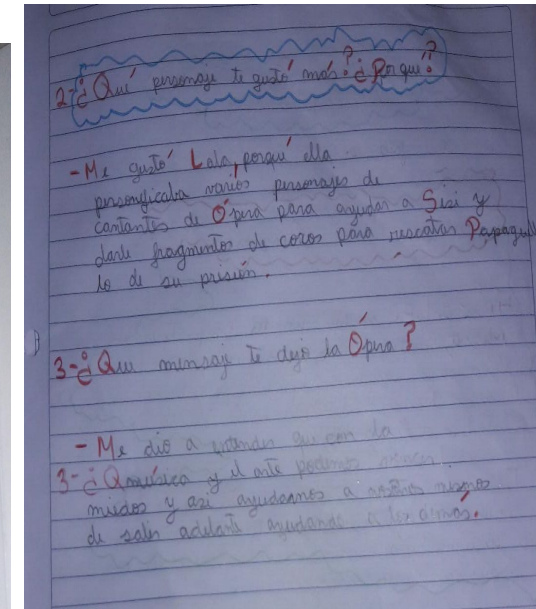 2-¿Qué personaje te gustó más? ¿Por qué?
-Me gustó Lala, porqué ella
personyficaba varios personajes de
cantantes de Ópera para ayudar a Sisi y
darle fragmentos de coros para rescatar Papague
lo de su prisión.
3-¿Que mensaje te dejó la Ópera?
-Me dio a entender que con la
3-¿Qmúsica y el arte podemos
miedos y asi ayudarnos a nosotros mismos
de salir adelante ayudando a los